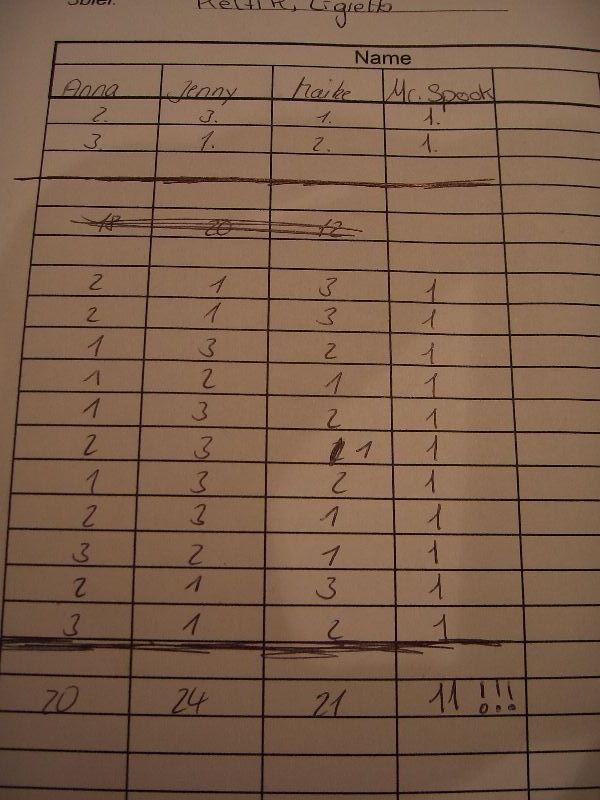 Spiel: Ligretto
Name
Anna Jenny Maike Mr. Spock
2. 3. 1. 1.
3. 1. 2. 1.
18 20 12
2 1 3 1
2 1 3 1
1 3 2 1
1 2 1 1
1 3 2 1
2 3 1 1
1 3 2 1
2 3 1 1
3 2 1 1
2 1 3 1
3 1 2 1
20 24 21 11 !!!